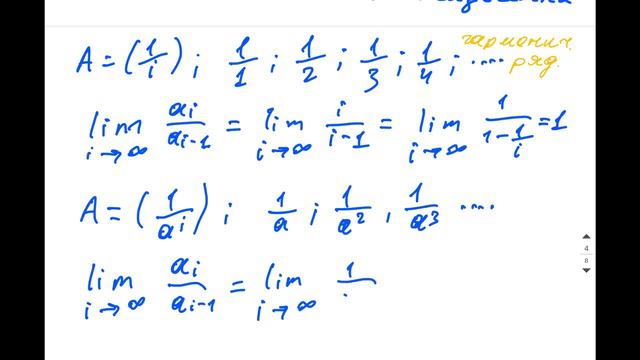 A = (1/i) ; 1/1 ; 1/2 ; 1/3 ; 1/4 ; .... гармонич. ряд.
lim i→∞ ai/ai-1 = lim i→∞ i/i-1 = lim i→∞ 1/1-1/i = 1
A = (1/a^i) ; 1/a ; 1/a² , 1/a³ ....
lim i→∞ ai/ai-1 = lim i→∞ 1/
4
8